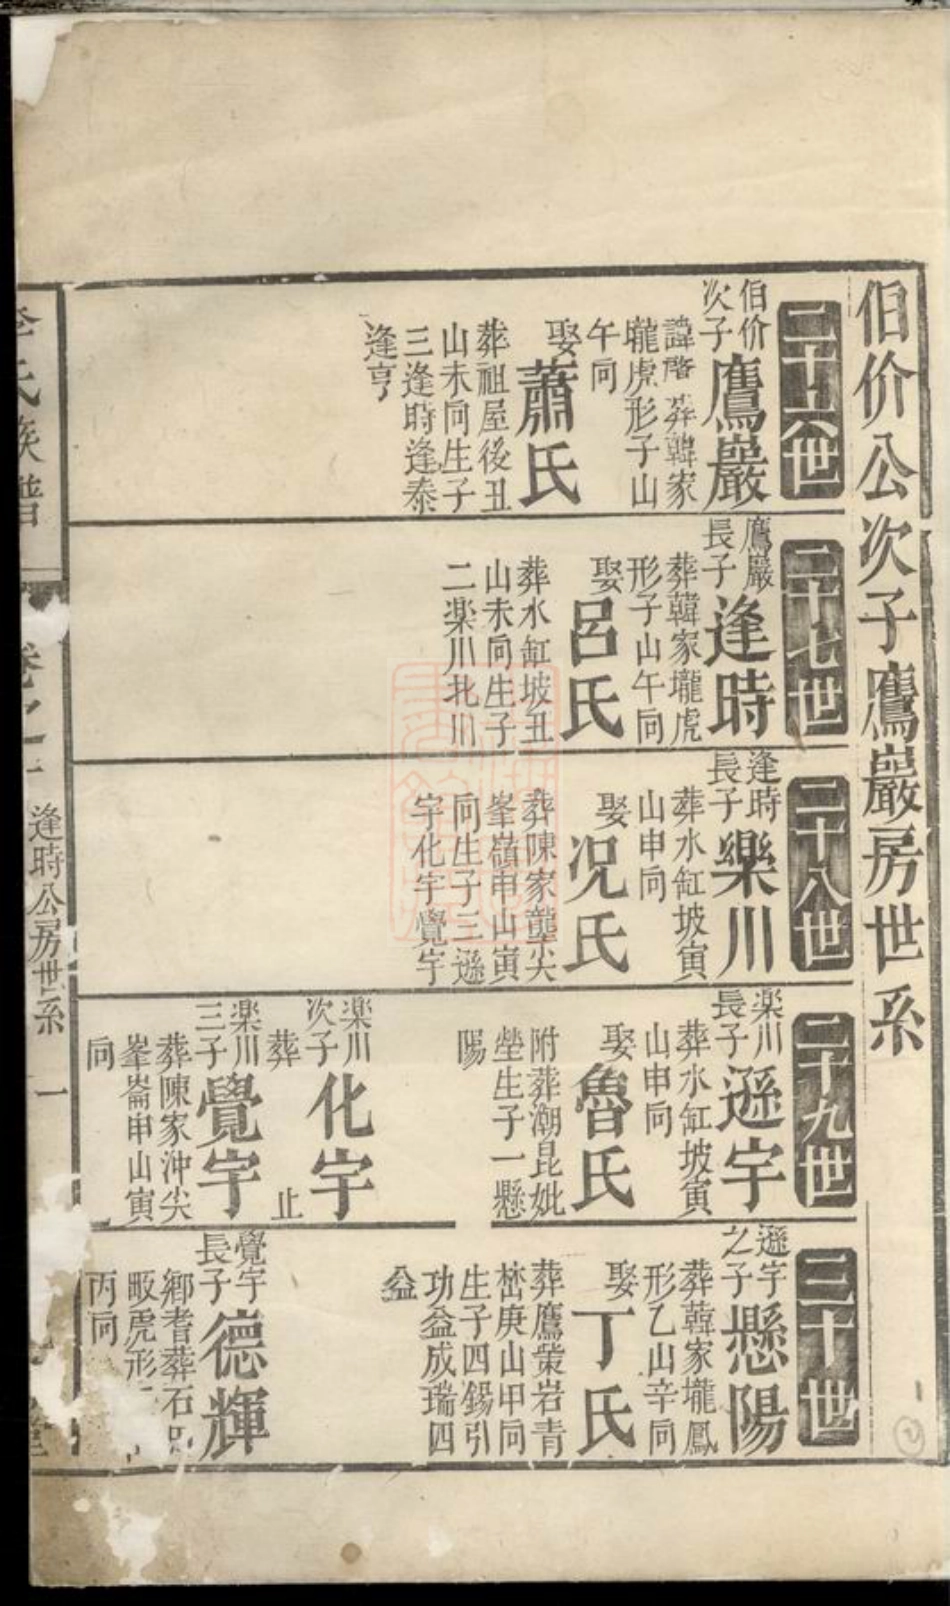 伯价公次子鷹巖房世系
二十六世
伯价
次子
鷹巖
諱啓葬韓家
壠虎形子山
午向
娶
蕭氏
葬祖屋後丑
山未向生子
三逢時逢泰
逢亨
二十七世
鷹巖
長子
逢時
葬韓家壠虎
形子山午向
娶
呂氏
葬水缸坡丑
山未向生子
二楽川北川
二十八世
逢時
長子
樂川
葬水缸坡寅
山申向
娶
况氏
葬陳家壟尖
峯嶺申山寅
向生子三遜
宇化宇覺宇
二十九世
楽川
長子
遜宇
葬水缸坡寅
山申向
娶
魯氏
附葬潮昆妣
塋生子一懸
陽
楽川
次子
化宇
葬 止
楽川
三子
覺宇
葬陳家沖尖
峯崙申山寅
向
三十世
遜宇
之子
懸陽
葬韓家壠鳳
形乙山辛向
娶
丁氏
葬鷹嵤岩青
嵀庚山甲向
生子四錫引
功益成瑞四
益
覺宇
長子
德輝
鄉耆葬石
畈虎形
丙向
氏族譜
卷之一
逢時公房世系
一